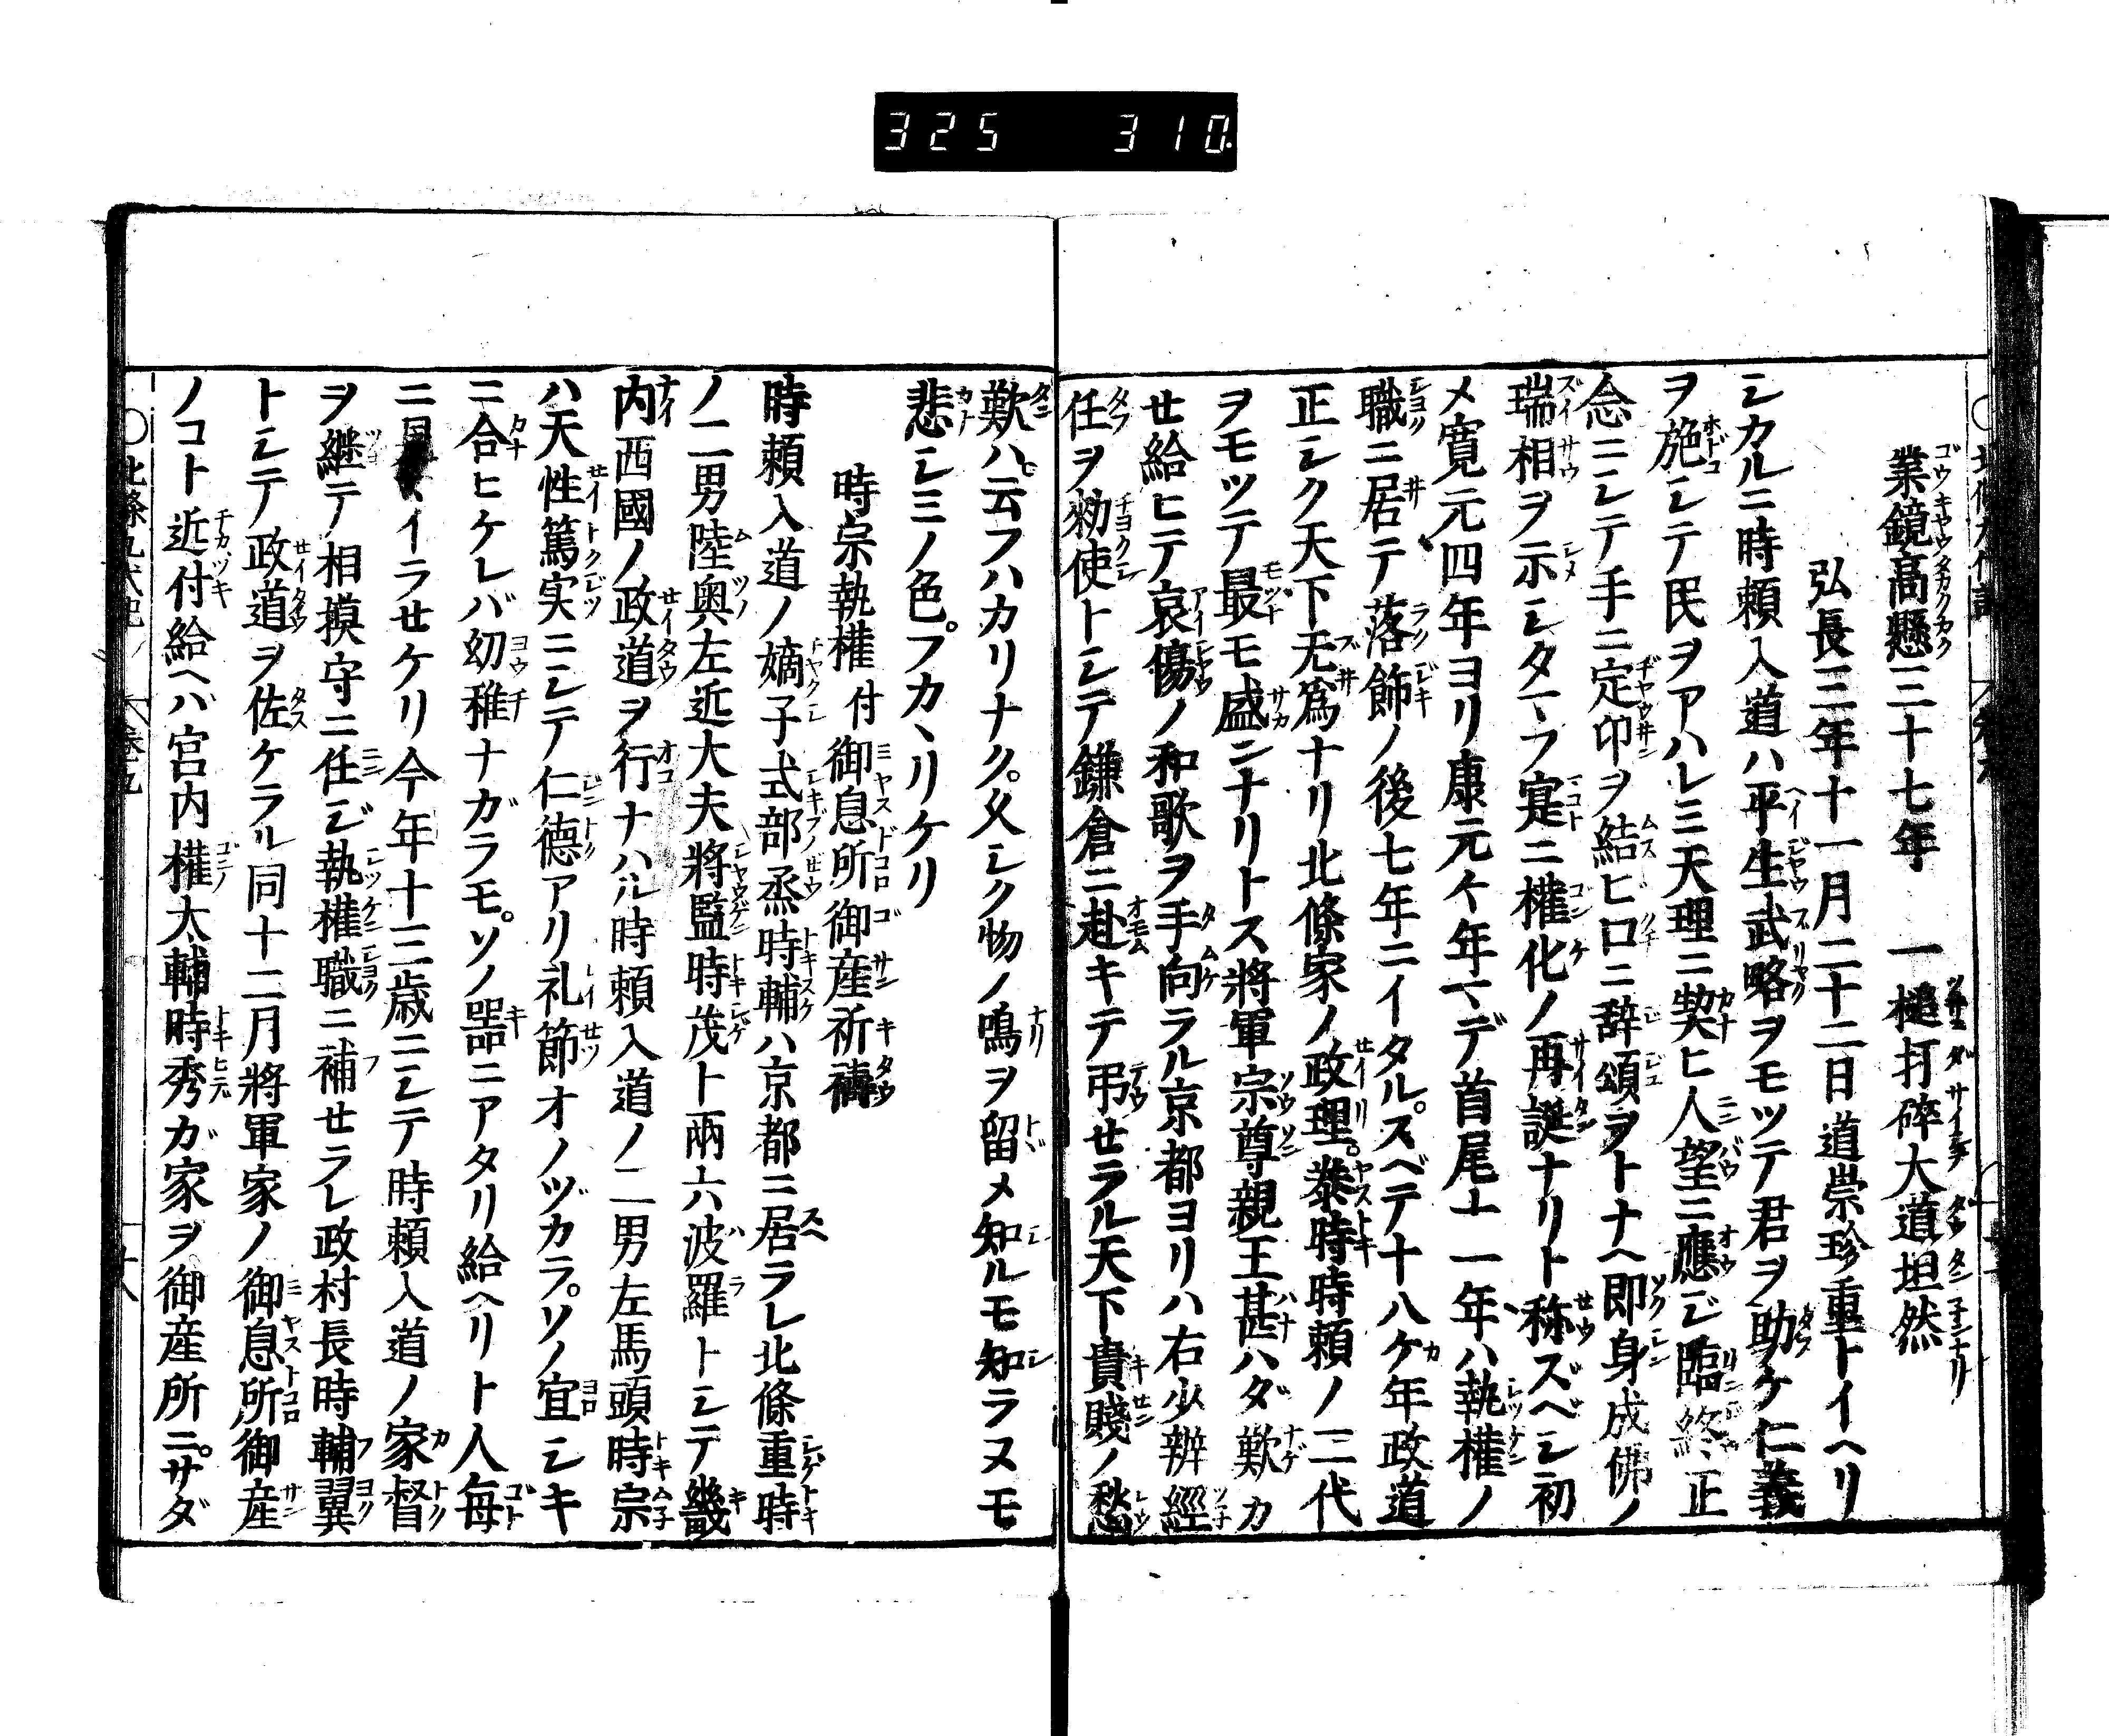 325 310
業鏡高懸三十七年 一槌打碎大道坦然
弘長三年十一月二十二日道崇珍重トイヘリ
シカルニ時頼入道ハ平生武略ヲモツテ君ヲ助ケ仁義
ヲ施シテ民ヲアハレミ天理ニ契ヒ人望ニ應じ臨終正
念ニシテ手ニ定印ヲ結ビ口ニ辞頌ヲトナヘ即身成佛ノ
瑞相ヲ示シタマフ寔ニ權化ノ再誕ナリト称ズベシ初
メ寛元四年ヨリ康元々年マデ首尾十一年ハ執權ノ
職ニ居テ落飾ノ後七年ニイタル。スベテ十八ケ年政道
正シク天下无爲ナリ北條家ノ政理。泰時時頼ノ二代
ヲモツテ最モ盛ンナリトス將軍宗尊親王甚ハダ歎カ
せ給ヒテ哀傷ノ和歌ヲ手向ラル京都ヨリハ右少辨經
任ヲ勅使トシテ鎌倉ニ赴キテ弔せラル天下貴賤ノ愁
歎ハ云フハカリナク。久シク物ノ鳴ヲ留メ知ルモ知ラヌモ
悲シミノ色。フカヽリケリ
時宗執權 付 御息所御産祈禱
時頼入道ノ嫡子式部丞時輔ハ京都ニ居ラレ北條重時
ノ二男陸奥左近大夫將監時茂ト兩六波羅トシテ畿
内西國ノ政道ヲ行ナハル時頼入道ノ二男左馬頭時宗
ハ天性篤実ニシテ仁德アリ礼節オノヅカラ。ソノ宜シキ
ニ合ヒケレバ幼稚ナガラモ。ソノ器ニアタリ給ヘリト人毎
ニヽイラせケリ今年十三歳ニシテ時頼入道ノ家督
ヲ継テ相摸守ニ任ジ執權職ニ補せラレ政村長時輔翼
トシテ政道ヲ佐ケラル同十二月將軍家ノ御息所御産
ノコト近付給ヘバ宮内權大輔時秀ガ家ヲ御産所ニ。サダ
〇北條九代記 卷九 十八